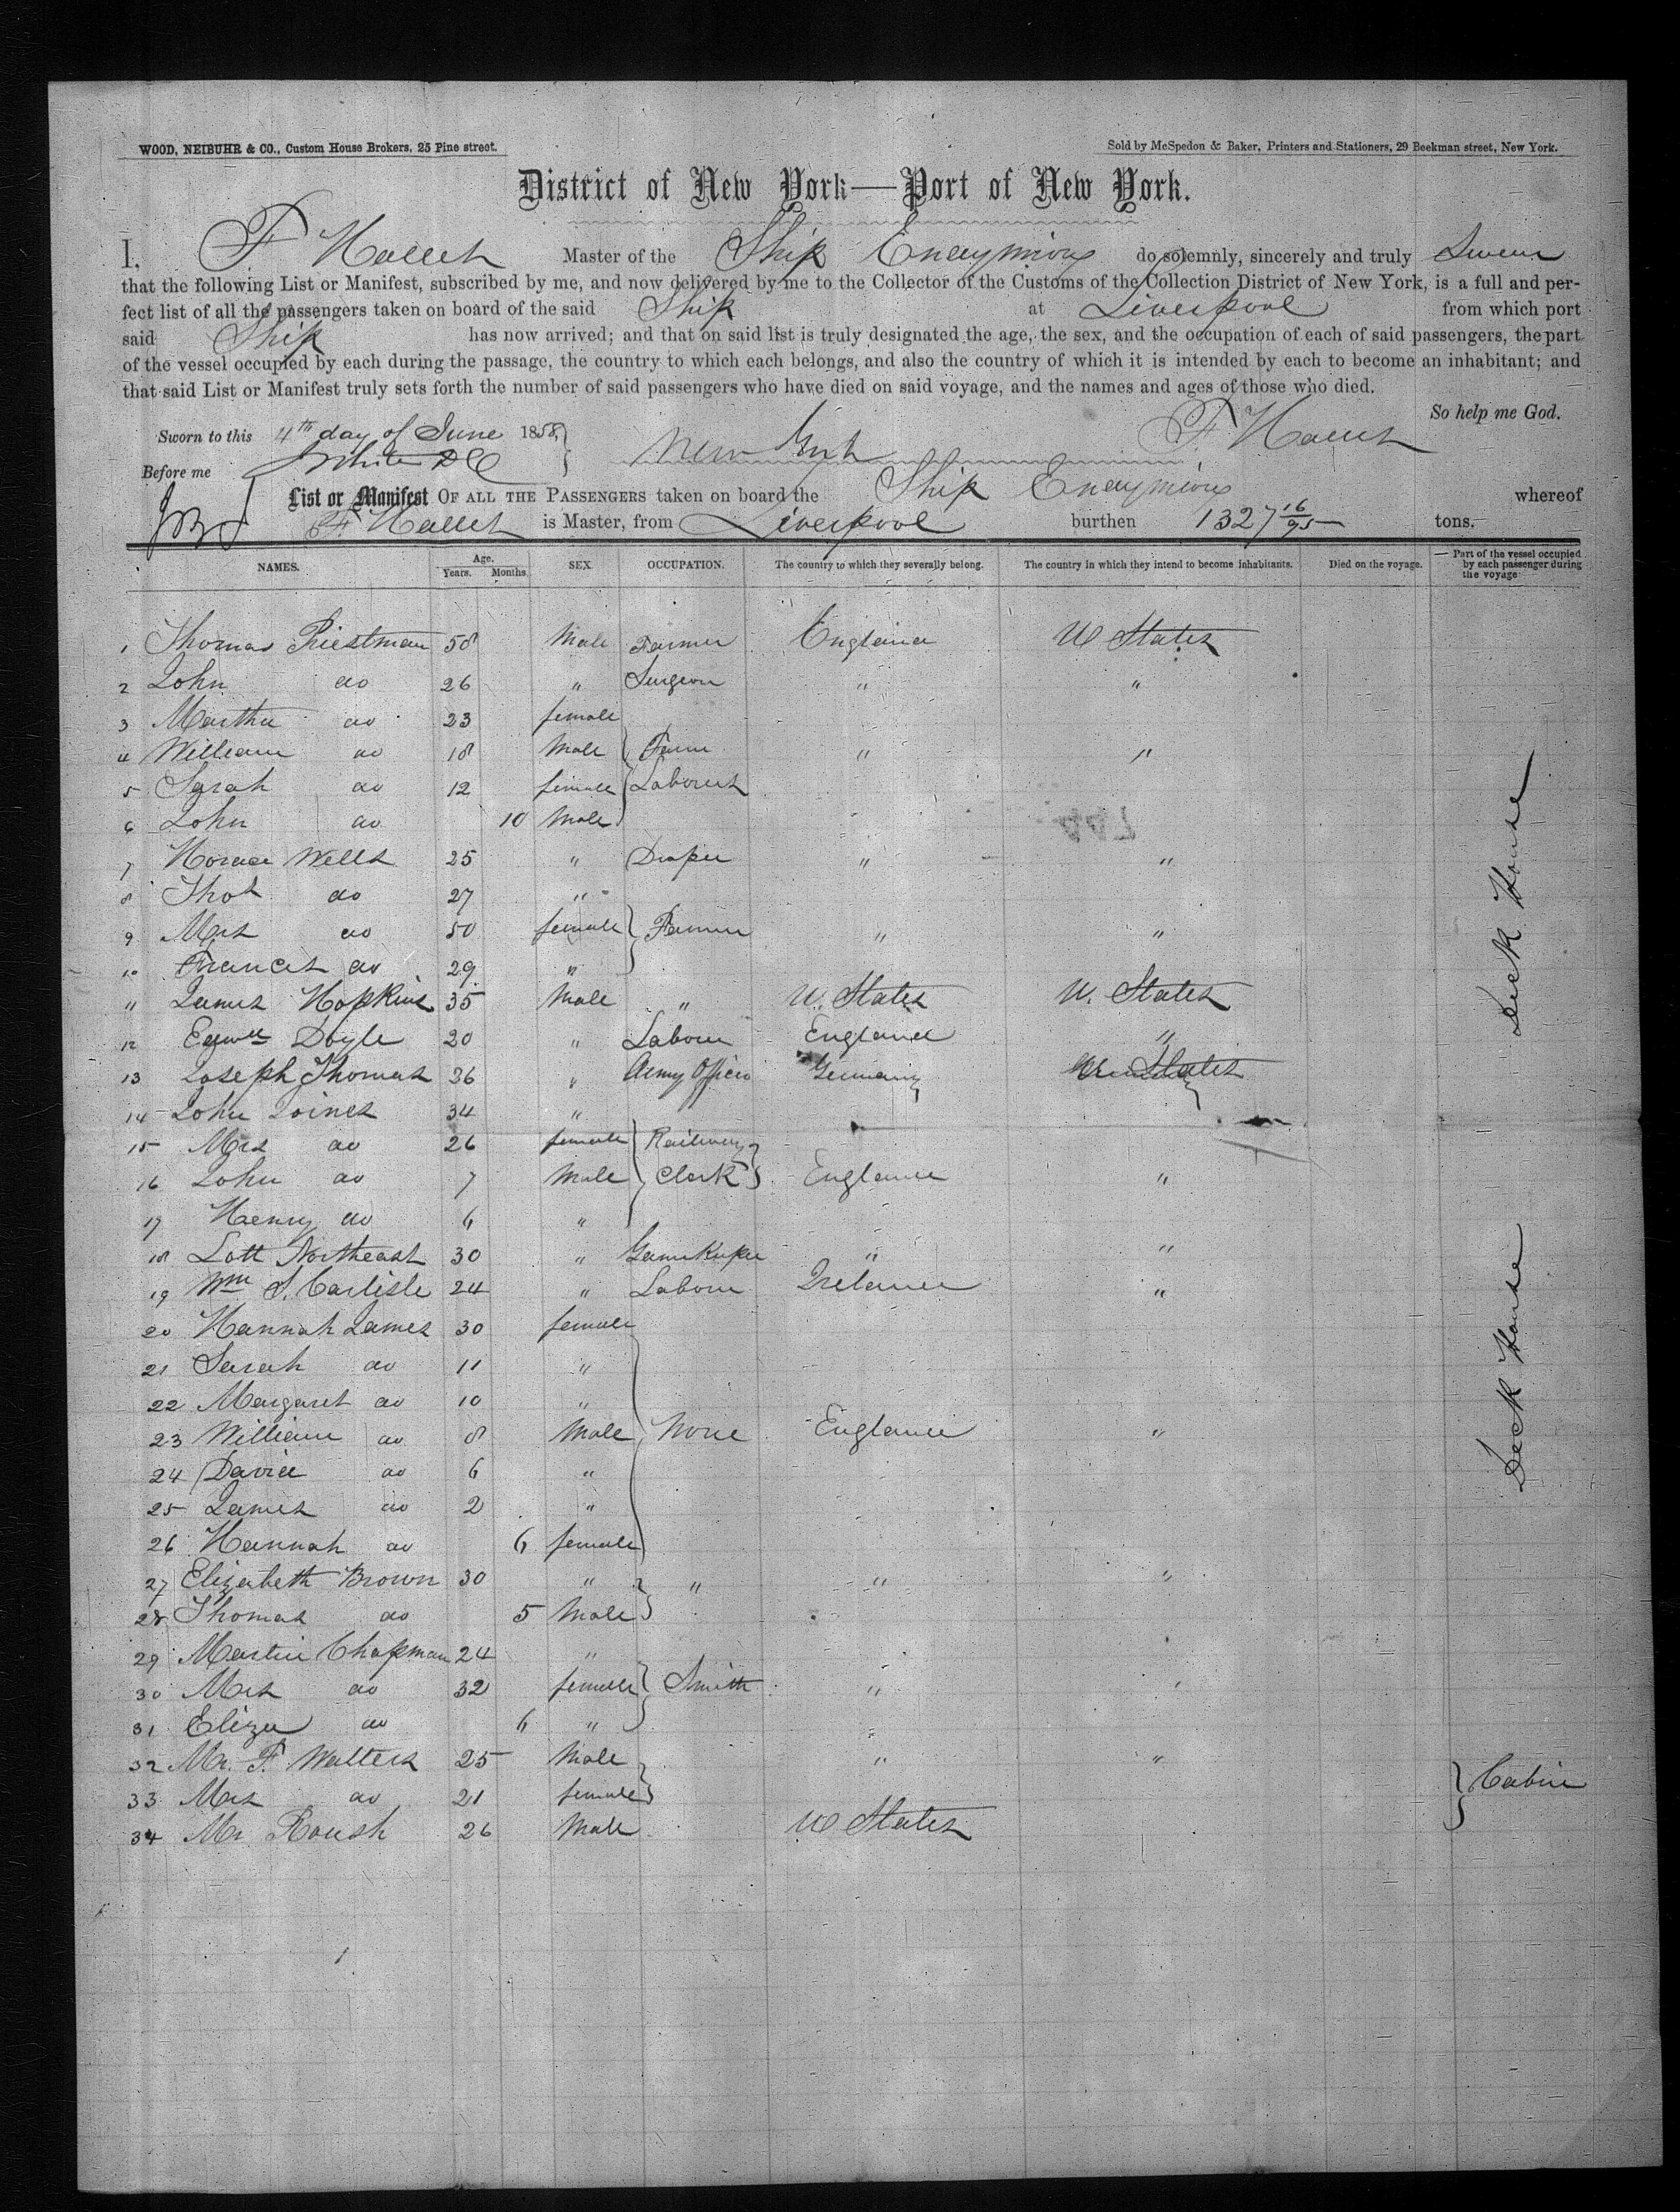 WOOD, NEIBUHR & CO., Custom House Brokers, 25 Pine street.
Sold by McSpedon & Baker, Printers and Stationers, 29 Beekman street, New York.
District of New York—Port of New York.
I, F Hallet Master of the Ship Endymion do solemnly, sincerely and truly Swear
that the following List or Manifest, subscribed by me, and now delivered by me to the Collector of the Customs of the Collection District of New York, is a full and per-
fect list of all the passengers taken on board of the said Ship at Liverpool from which port
said Ship has now arrived; and that on said list is truly designated the age, the sex, and the occupation of each of said passengers, the part
of the vessel occupied by each during the passage, the country to which each belongs, and also the country of which it is intended by each to become an inhabitant; and
that said List or Manifest truly sets forth the number of said passengers who have died on said voyage, and the names and ages of those who died.
So help me God.
Sworn to this 4th day of June 1858, New York F. Hallet
Before me White D C
List or Manifest OF ALL THE PASSENGERS taken on board the Ship Endymion whereof
F Hallet is Master, from Liverpool burthen 1327 16/95 tons.
NAMES. Age. Years. Months. SEX. OCCUPATION. The country to which they severally belong. The country in which they intend to become inhabitants. Died on the voyage. Part of the vessel occupied by each passenger during the voyage
1 Thomas Priestman 58 Male Farmer England U States
2 John do 26 " Surgeon " "
3 Martha do 23 female
4 William do 18 Male Farm " "
5 Sarah do 12 female Laborers
6 John do 10 Male
7 Horace Wells 25 " Draper " "
8 Thos do 27 "
9 Mrs do 50 female Farmer " "
10 Frances do 29 "
11 James Hopkins 35 Male " U. States U. States
12 Doyle 20 " Laborer England "
13 Joseph Thomas 36 " Army Officer Germany U States
14 John Joines 34 "
15 Mrs do 26 female Railway
16 John do 7 Male Clerk England "
17 Henry do 6 "
18 Lott Northeast 30 " Gamekeeper " "
19 Wm S. Carlisle 24 " Laborer Ireland "
20 Hannah James 30 female
21 Sarah do 11 "
22 Margaret do 10 "
23 William do 8 Male None England "
24 David do 6 "
25 James do 2 "
26 Hannah do 6 female
27 Elizabeth Brown 30 " " " "
28 Thomas do 5 Male
29 Martin Chapman 24 "
30 Mrs do 32 female Smith " "
31 Eliza do 6 "
32 Mr. F. Walters 25 Male " "
33 Mrs do 21 female Cabin
34 Mr Roush 26 Male U States
Deck House
Deck House